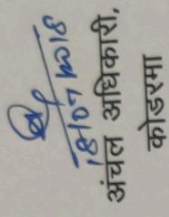 18/07/2018
अंचल अधिकारी,
कोडरमा